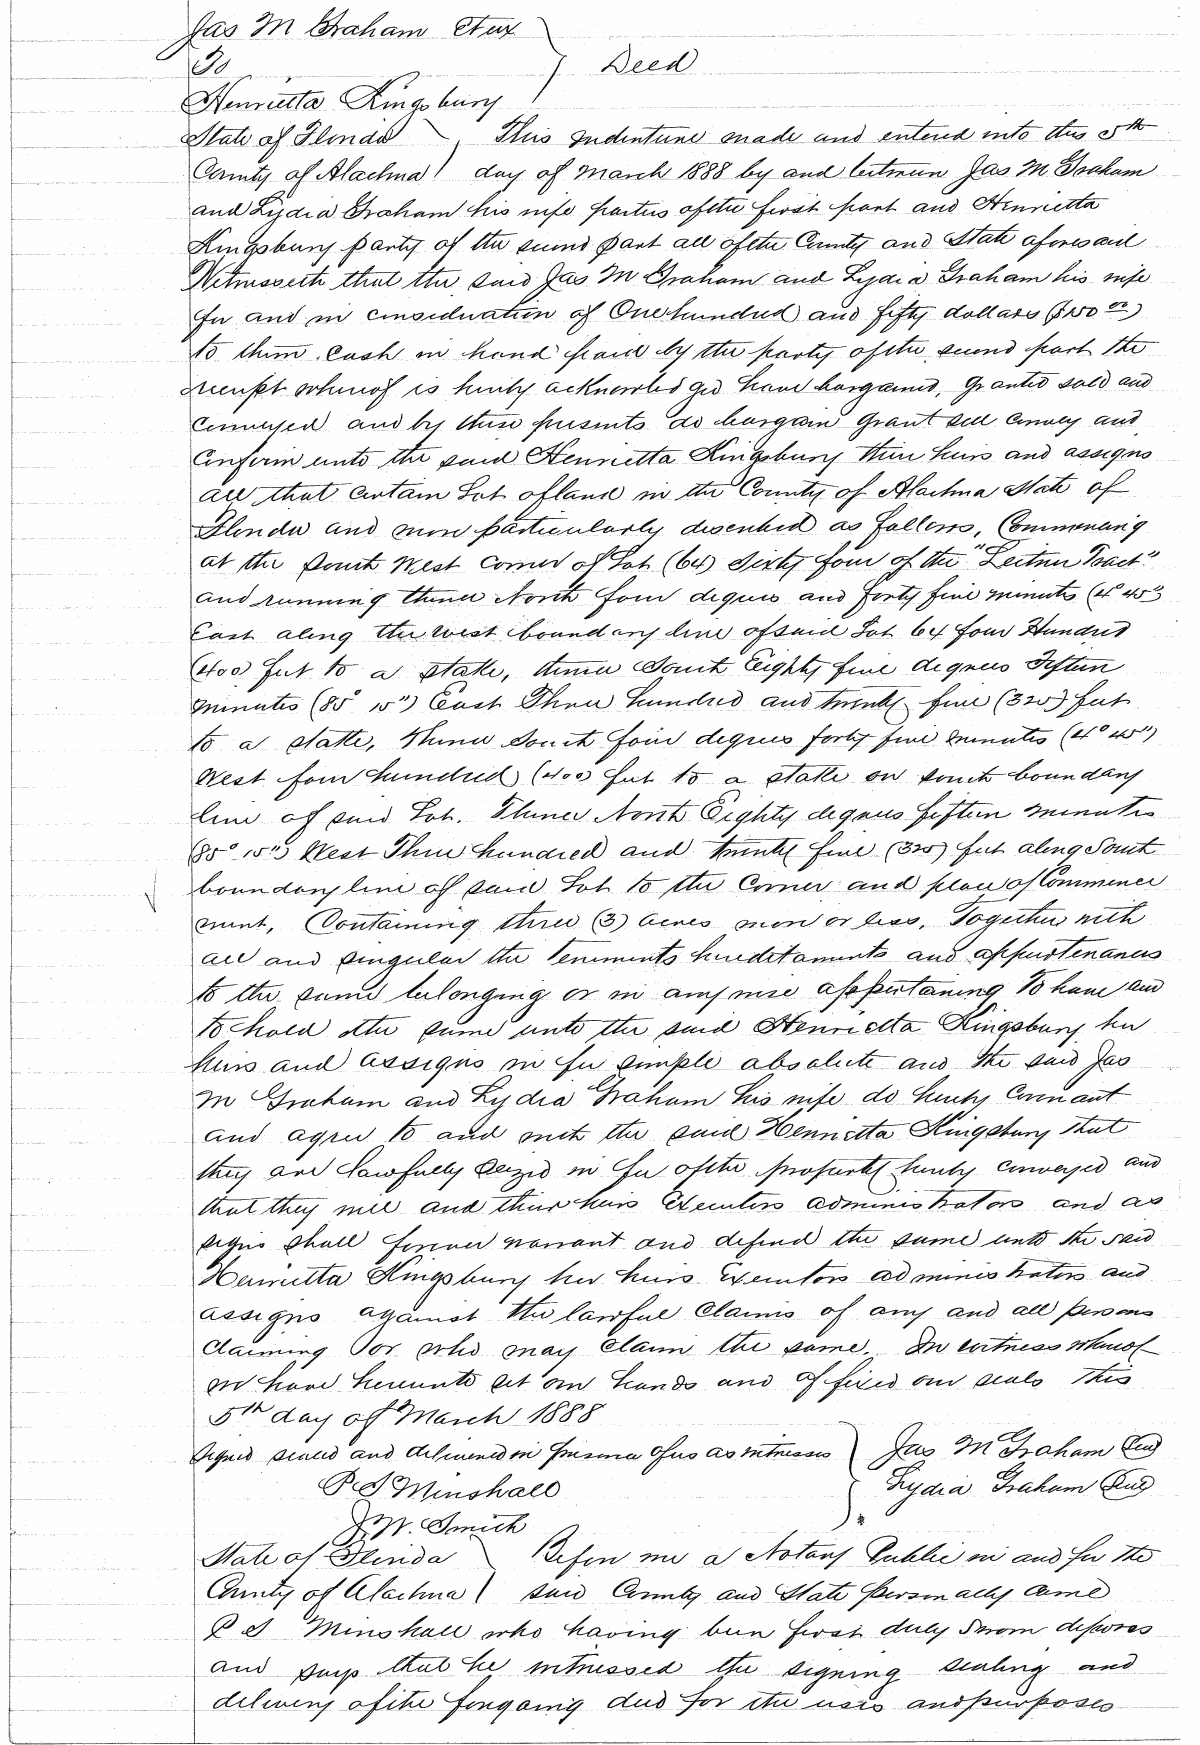 Jas M Graham Etux
To } Deed
Henrietta Kingsbury
State of Florida } This Indenture made and entered into this 5th
County of Alachua } day of March 1888 by and between Jas M Graham
and Lydia Graham his wife parties of the first part and Henrietta
Kingsbury party of the second part all of the County and State aforesaid
Witnesseth that the said Jas M Graham and Lydia Graham his wife
for and in consideration of One hundred and fifty dollars ($150 00)
to them cash in hand paid by the party of the second part the
receipt whereof is hereby acknowledged have bargained, granted sold and
conveyed and by these presents do bargain grant sell convey and
confirm unto the said Henrietta Kingsbury their heirs and assigns
all that certain Lot of land in the County of Alachua State of
Florida and more particularly described as follows, Commencing
at the South West corner of Lot (64) Sixty four of the "Leitner Tract"
and running thence North four degrees and forty five minutes (4° 45")
East along the west boundary line of said Lot 64 four Hundred
(400) feet to a stake, thence South Eighty five degrees fifteen
minutes (85° 15") East Three hundred and twenty five (325) feet
to a stake, Thence South four degrees forty five minutes (4° 45")
West four hundred (400) feet to a stake on south boundary
line of said Lot. Thence North Eighty degrees fifteen minutes
(85° 15") West Three hundred and twenty five (325) feet along South
boundary line of said Lot to the Corner and place of Commence
ment, Containing three (3) acres more or less, Together with
all and singular the tenements hereditaments and appurtenances
to the same belonging or in anywise appertaining To have and
to hold the same unto the said Henrietta Kingsbury her
heirs and assigns in fee simple absolute and the said Jas
M Graham and Lydia Graham his wife do hereby covenant
and agree to and with the said Henrietta Kingsbury that
they are lawfully seized in fee of the property hereby conveyed and
that they will and their heirs Executors administrators and as
signs shall forever warrant and defend the same unto the said
Henrietta Kingsbury her heirs Executors administrators and
assigns against the lawful claims of any and all persons
claiming or who may claim the same. In witness whereof
we have hereunto set our hands and affixed our seals this
5th day of March 1888
Signed sealed and delivered in presence of us as witnesses } Jas M Graham Seal
P S Minshall } Lydia Graham Seal
J. W. Smith
State of Florida } Before me a Notary Public in and for the
County of Alachua } said County and State personally came
P S Minshall who having been first duly sworn deposes
and says that he witnessed the signing sealing and
delivery of the foregoing deed for the uses and purposes